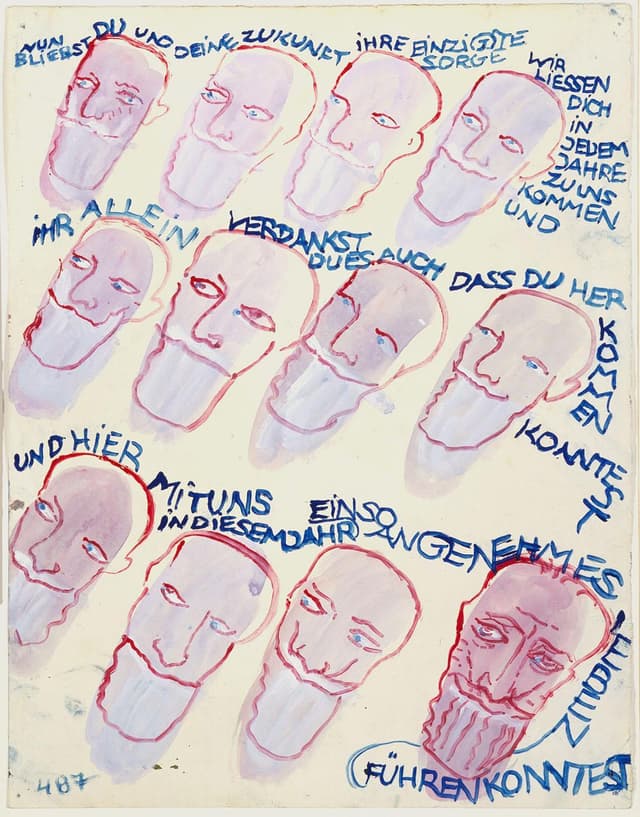 NUN BLIEBST DU UND DEINE ZUKUNFT IHRE EINZIGSTE SORGE
WIR
LIESSEN
DICH
IN
JEDEM
JAHRE
ZU UNS
KOMMEN
UND
IHR ALLEIN VERDANKST
DU ES AUCH DASS DU HER
KOMMEN
KONNTEST
UND HIER MIT UNS
IN DIESEM JAHR EIN SO
ANGENEHMES
LEBEN
FÜHREN KONNTEST
487